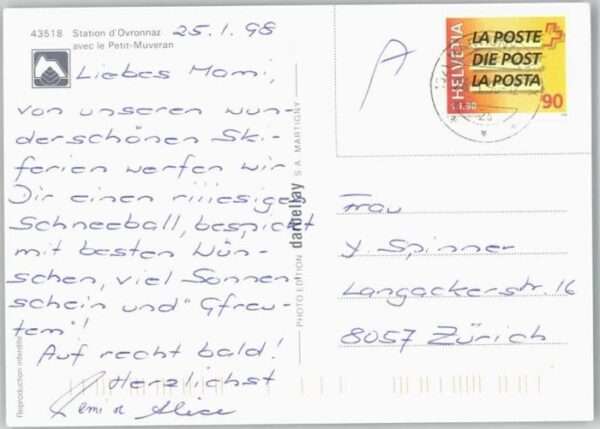 43518 Station d'Ovronnaz
avec le Petit-Muveran
25.1.98
Liebes Mami,
von unseren wun-
derschönen Ski-
ferien werfen wir
Dir einen riiiesigen
Schneeball, bespickt
mit besten Wün-
schen, viel Sonnen
schein und "Gfreu-
tem"!
Auf recht bald!
Herzlichst
Alice
Reproduction interdite
PHOTO EDITION darbellay S.A. MARTIGNY
A
HELVETIA
LA POSTE
DIE POST
LA POSTA
90
Frau
Y. Spinner
Langackerstr. 16
8057 Zürich